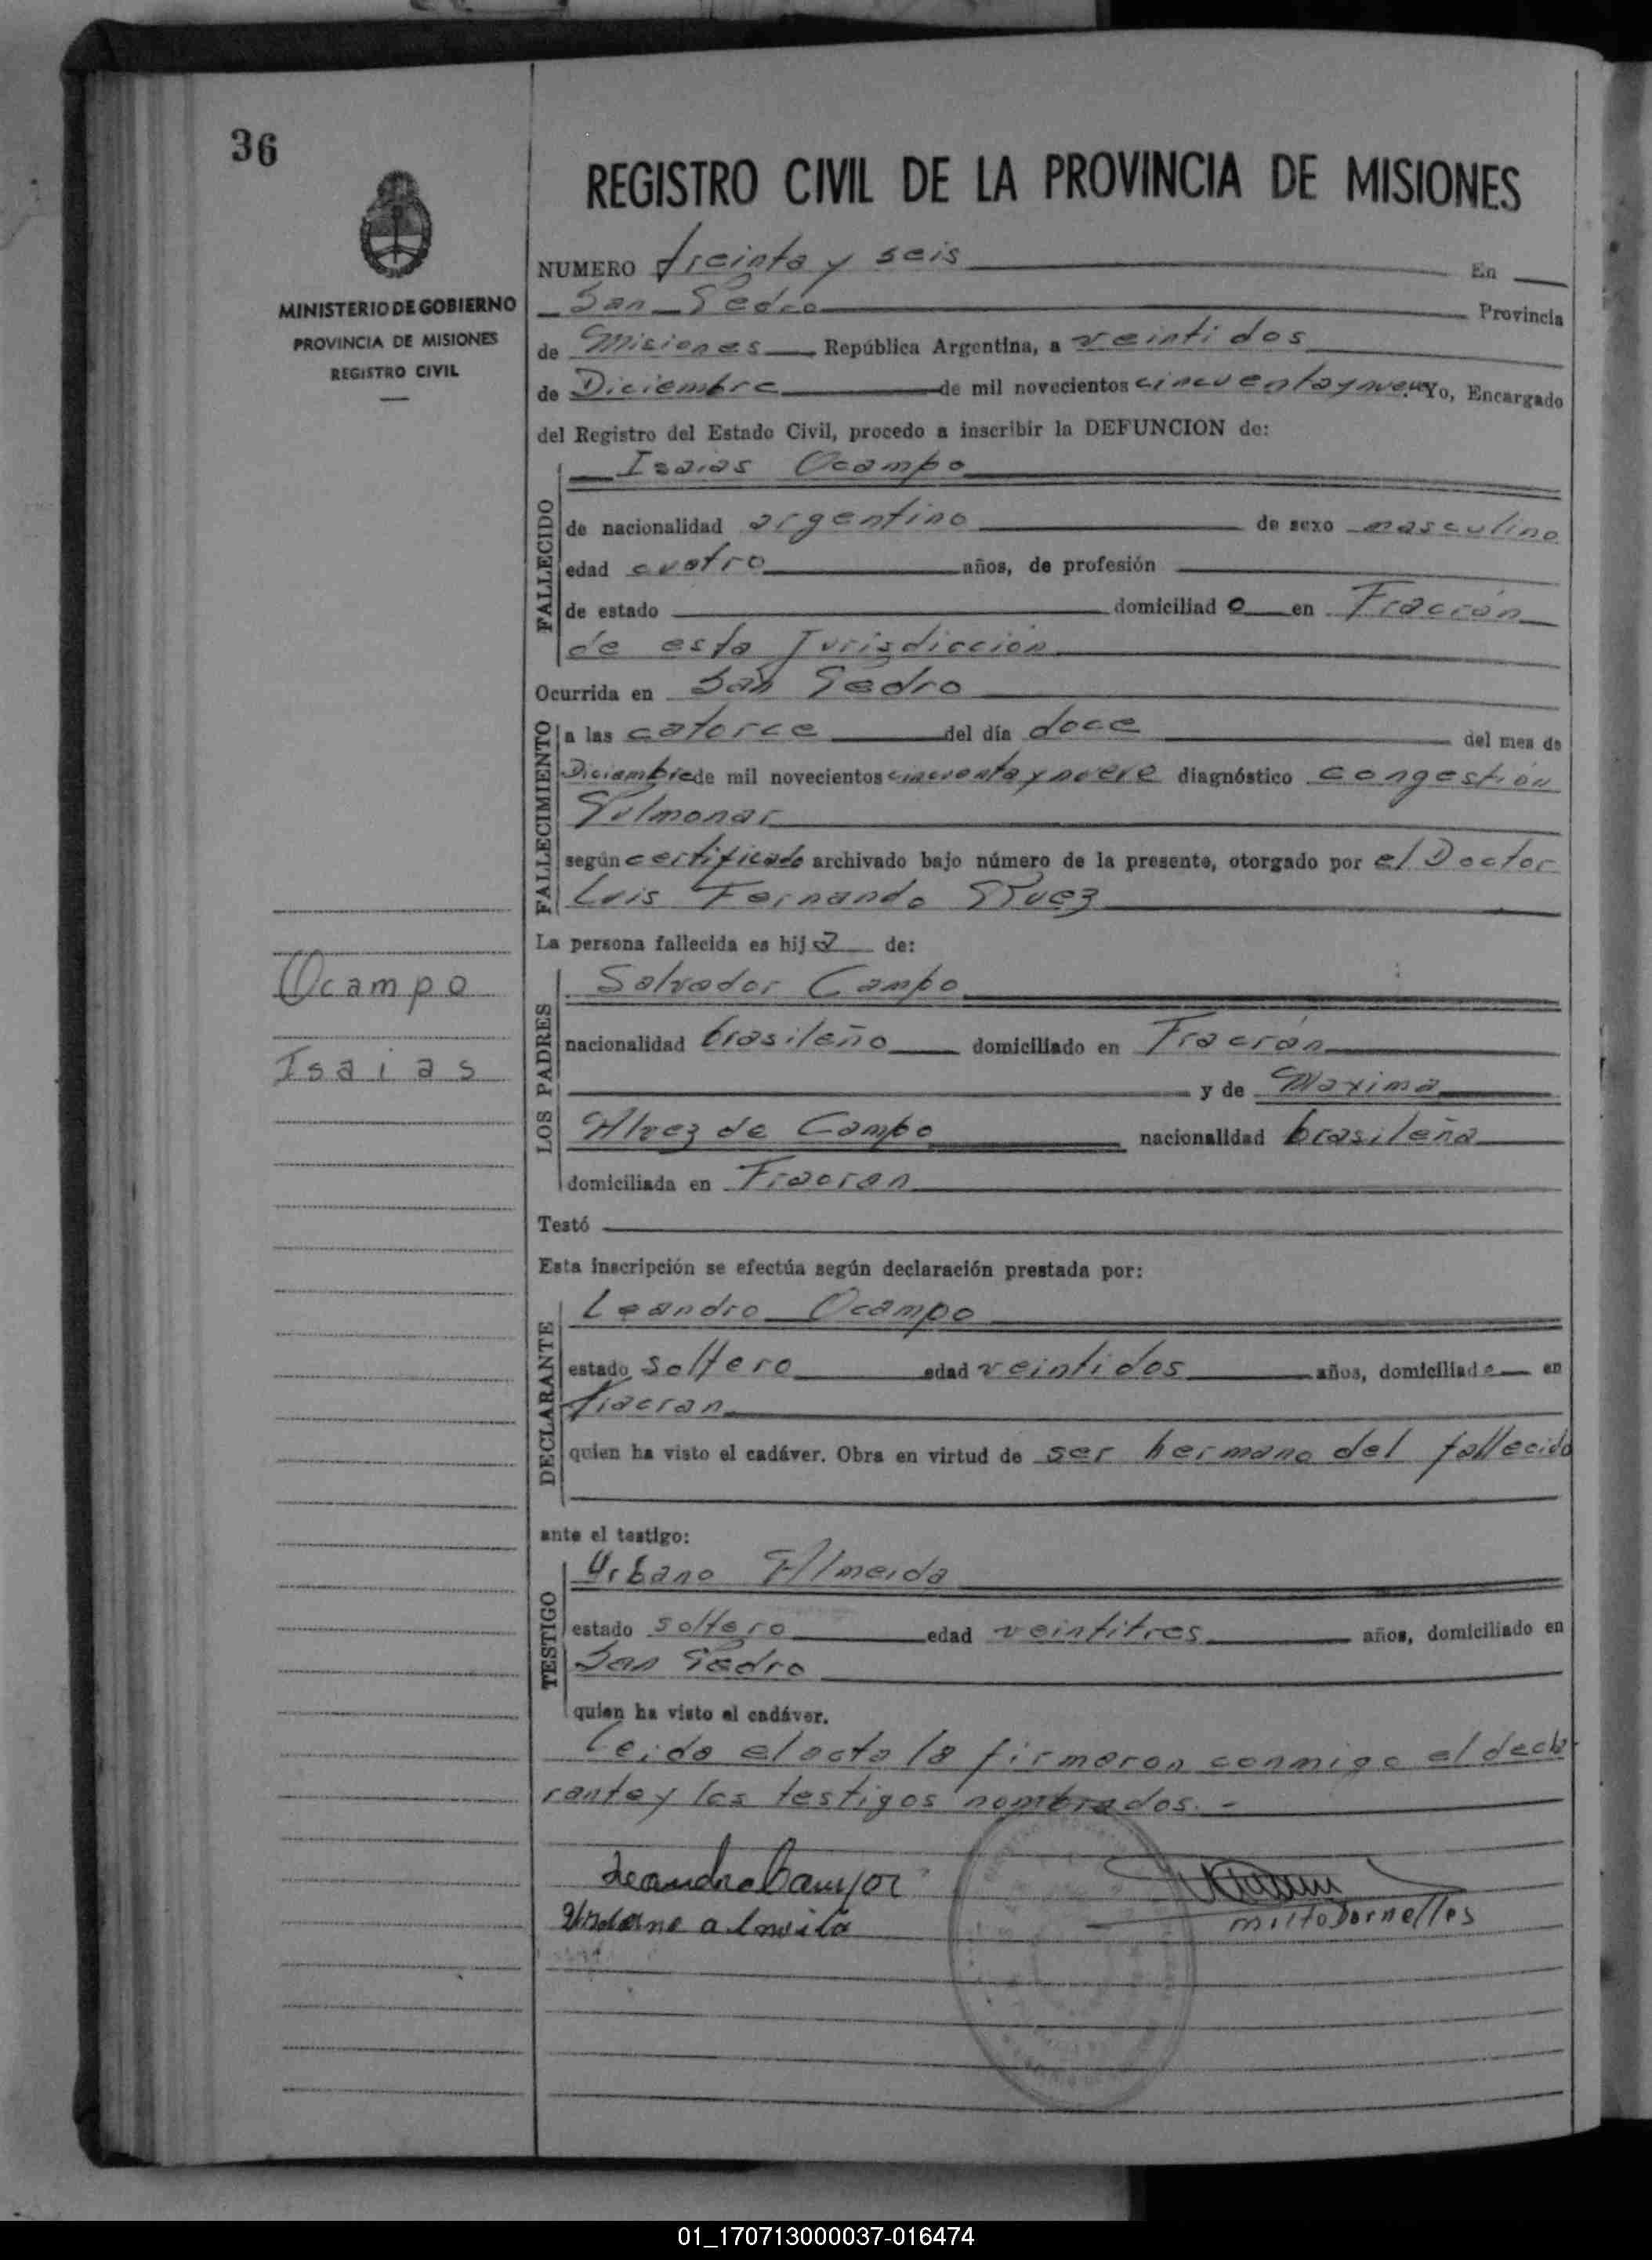 36
REGISTRO CIVIL DE LA PROVINCIA DE MISIONES
MINISTERIO DE GOBIERNO
PROVINCIA DE MISIONES
REGISTRO CIVIL
NUMERO treinta y seis En
San Pedro Provincia
de Misiones República Argentina, a veintidos
de Diciembre de mil novecientos cincuenta y nueve Yo, Encargado
del Registro del Estado Civil, procedo a inscribir la DEFUNCION de:
Isaias Ocampo
FALLECIDO
de nacionalidad argentino de sexo masculino
edad cuatro años, de profesión
de estado domiciliad o en Fracrán
de esta Jurisdicción
Ocurrida en San Pedro
FALLECIMIENTO
a las catorce del día doce del mes de
Diciembre de mil novecientos cincuenta y nueve diagnóstico congestión
Pulmonar
según certificado archivado bajo número de la presente, otorgado por el Doctor
Luis Fernando
La persona fallecida es hij de:
Ocampo
Isaias
LOS PADRES
Salvador Campo
nacionalidad brasileño domiciliado en Fracrán
y de Maxima
Alvez de Campo nacionalidad brasileña
domiciliada en Fracran
Testó
Esta inscripción se efectúa según declaración prestada por:
DECLARANTE
Leandro Ocampo
estado soltero edad veintidos años, domiciliado en
fracran
quien ha visto el cadáver. Obra en virtud de ser hermano del fallecido
ante el testigo:
TESTIGO
Urbano Almeida
estado soltero edad veintitres años, domiciliado en
San Pedro
quien ha visto el cadáver.
Leida el acta la firmaron conmigo el decla
rante y los testigos nombrados.-
Milto Dornelles
01_170713000037-016474